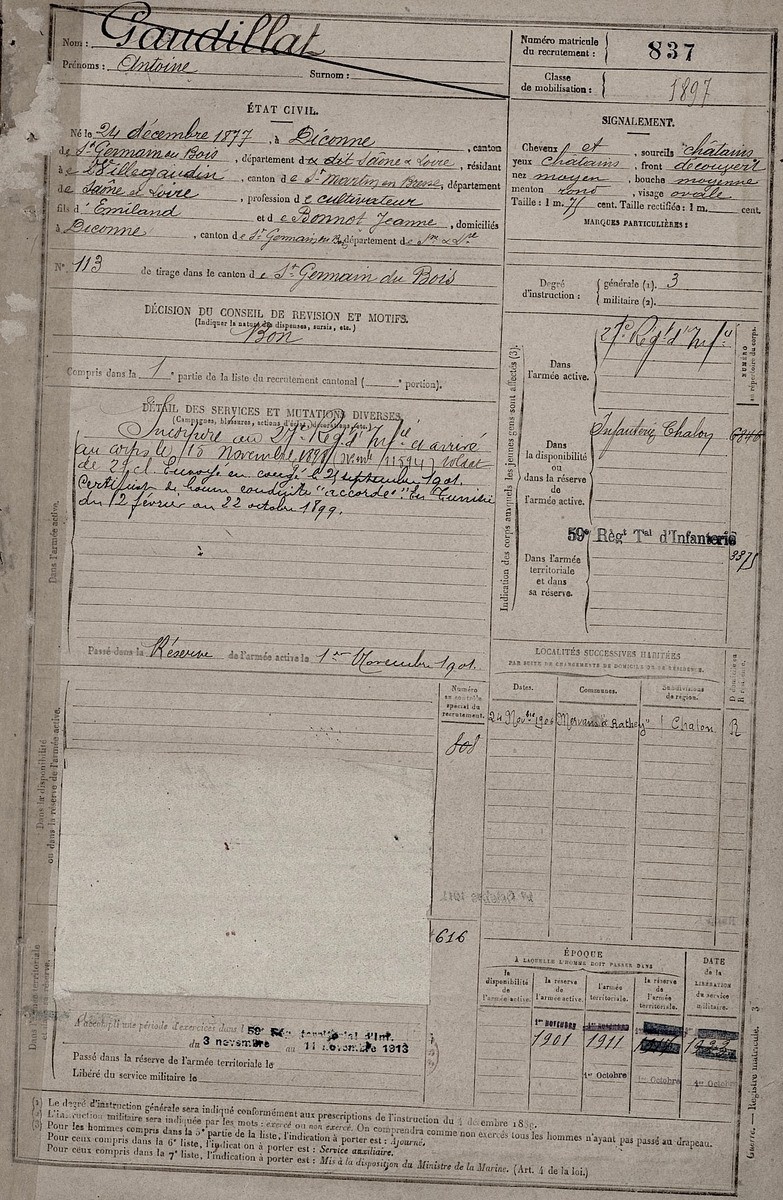 Nom : Gaudillat
Prénoms : Antoine Surnom :
Numéro matricule du recrutement : 837
Classe de mobilisation : 1897
ÉTAT CIVIL.
Né le 24 décembre 1877, à Diconne, canton
de St Germain du Bois, département d dit Saône & Loire, résidant
à Villegaudin, canton de St Martin en Bresse, département
de Saône et Loire, profession de cultivateur
fils d'Emiland et de Bonnot Jeanne, domiciliés
à Diconne, canton de St Germain du B, département de Sne & Lre
N° 113 de tirage dans le canton de St Germain du Bois
SIGNALEMENT.
Cheveux et, sourcils chatains
yeux chatains, front découvert
nez moyen, bouche moyenne
menton rond, visage ovale
Taille : 1 m. 75 cent. Taille rectifiée : 1 m. cent.
MARQUES PARTICULIÈRES :
Degré d'instruction : générale (1). 3
militaire (2).
DÉCISION DU CONSEIL DE REVISION ET MOTIFS.
(Indiquer la nature des dispenses, sursis, etc.)
Bon
Compris dans la 1e partie de la liste du recrutement cantonal ( e portion).
DÉTAIL DES SERVICES ET MUTATIONS DIVERSES.
(Campagnes, blessures, actions d'éclat, décorations, etc.)
Incorporé au 27e Régt d'Infie et arrivé
au corps le 15 novembre 1898 (No mle 11594) soldat
de 2e cl. Envoyé en congé le 21 septembre 1901.
Certificat de bonne conduite "accordé". En Tunisie
du 12 février au 22 octobre 1899.
Dans l'armée active.
Passé dans la Réserve de l'armée active le 1er Novembre 1901.
Indication des corps auxquels les jeunes gens sont affectés (3).
NUMÉRO au répertoire du corps.
Dans l'armée active.
27e Régt d'Infie
Dans la disponibilité ou dans la réserve de l'armée active.
Infanterie Chalon
59e Régt Tal d'Infanterie
3375
Dans l'armée territoriale et dans sa réserve.
LOCALITÉS SUCCESSIVES HABITÉES
PAR SUITE DE CHANGEMENTS DE DOMICILE OU DE RÉSIDENCE.
Dates. Communes. Subdivisions de région.
24 Novbre 1906 Chalon R
Numéro au contrôle spécial du recrutement.
808
Dans la disponibilité ou dans la réserve de l'armée active.
616
Dans l'armée territoriale
ÉPOQUE
À LAQUELLE L'HOMME DOIT PASSER DANS
la disponibilité de l'armée active. la réserve de l'armée active. l'armée territoriale. la réserve de l'armée territoriale.
DATE de la LIBÉRATION du service militaire.
1er NOVEMBRE 1901 1er NOVEMBRE 1911
1er Octobre 1er Octobre 1er Octobre
A accompli une période d'exercices dans le 59e Rég. territorial d'Inf.
du 3 novembre au 11 novembre 1913
Passé dans la réserve de l'armée territoriale le
Libéré du service militaire le
(1) Le degré d'instruction générale sera indiqué conformément aux prescriptions de l'instruction du 4 décembre 1889.
(2) L'instruction militaire sera indiquée par les mots : exercé ou non exercé. On comprendra comme non exercés tous les hommes n'ayant pas passé au drapeau.
(3) Pour les hommes compris dans la 5e partie de la liste, l'indication à porter est : Ajourné.
Pour ceux compris dans la 6e liste, l'indication à porter est : Service auxiliaire.
Pour ceux compris dans la 7e liste, l'indication à porter est : Mis à la disposition du Ministre de la Marine. (Art. 4 de la loi.)
Guerre. — Registre matricule. 3